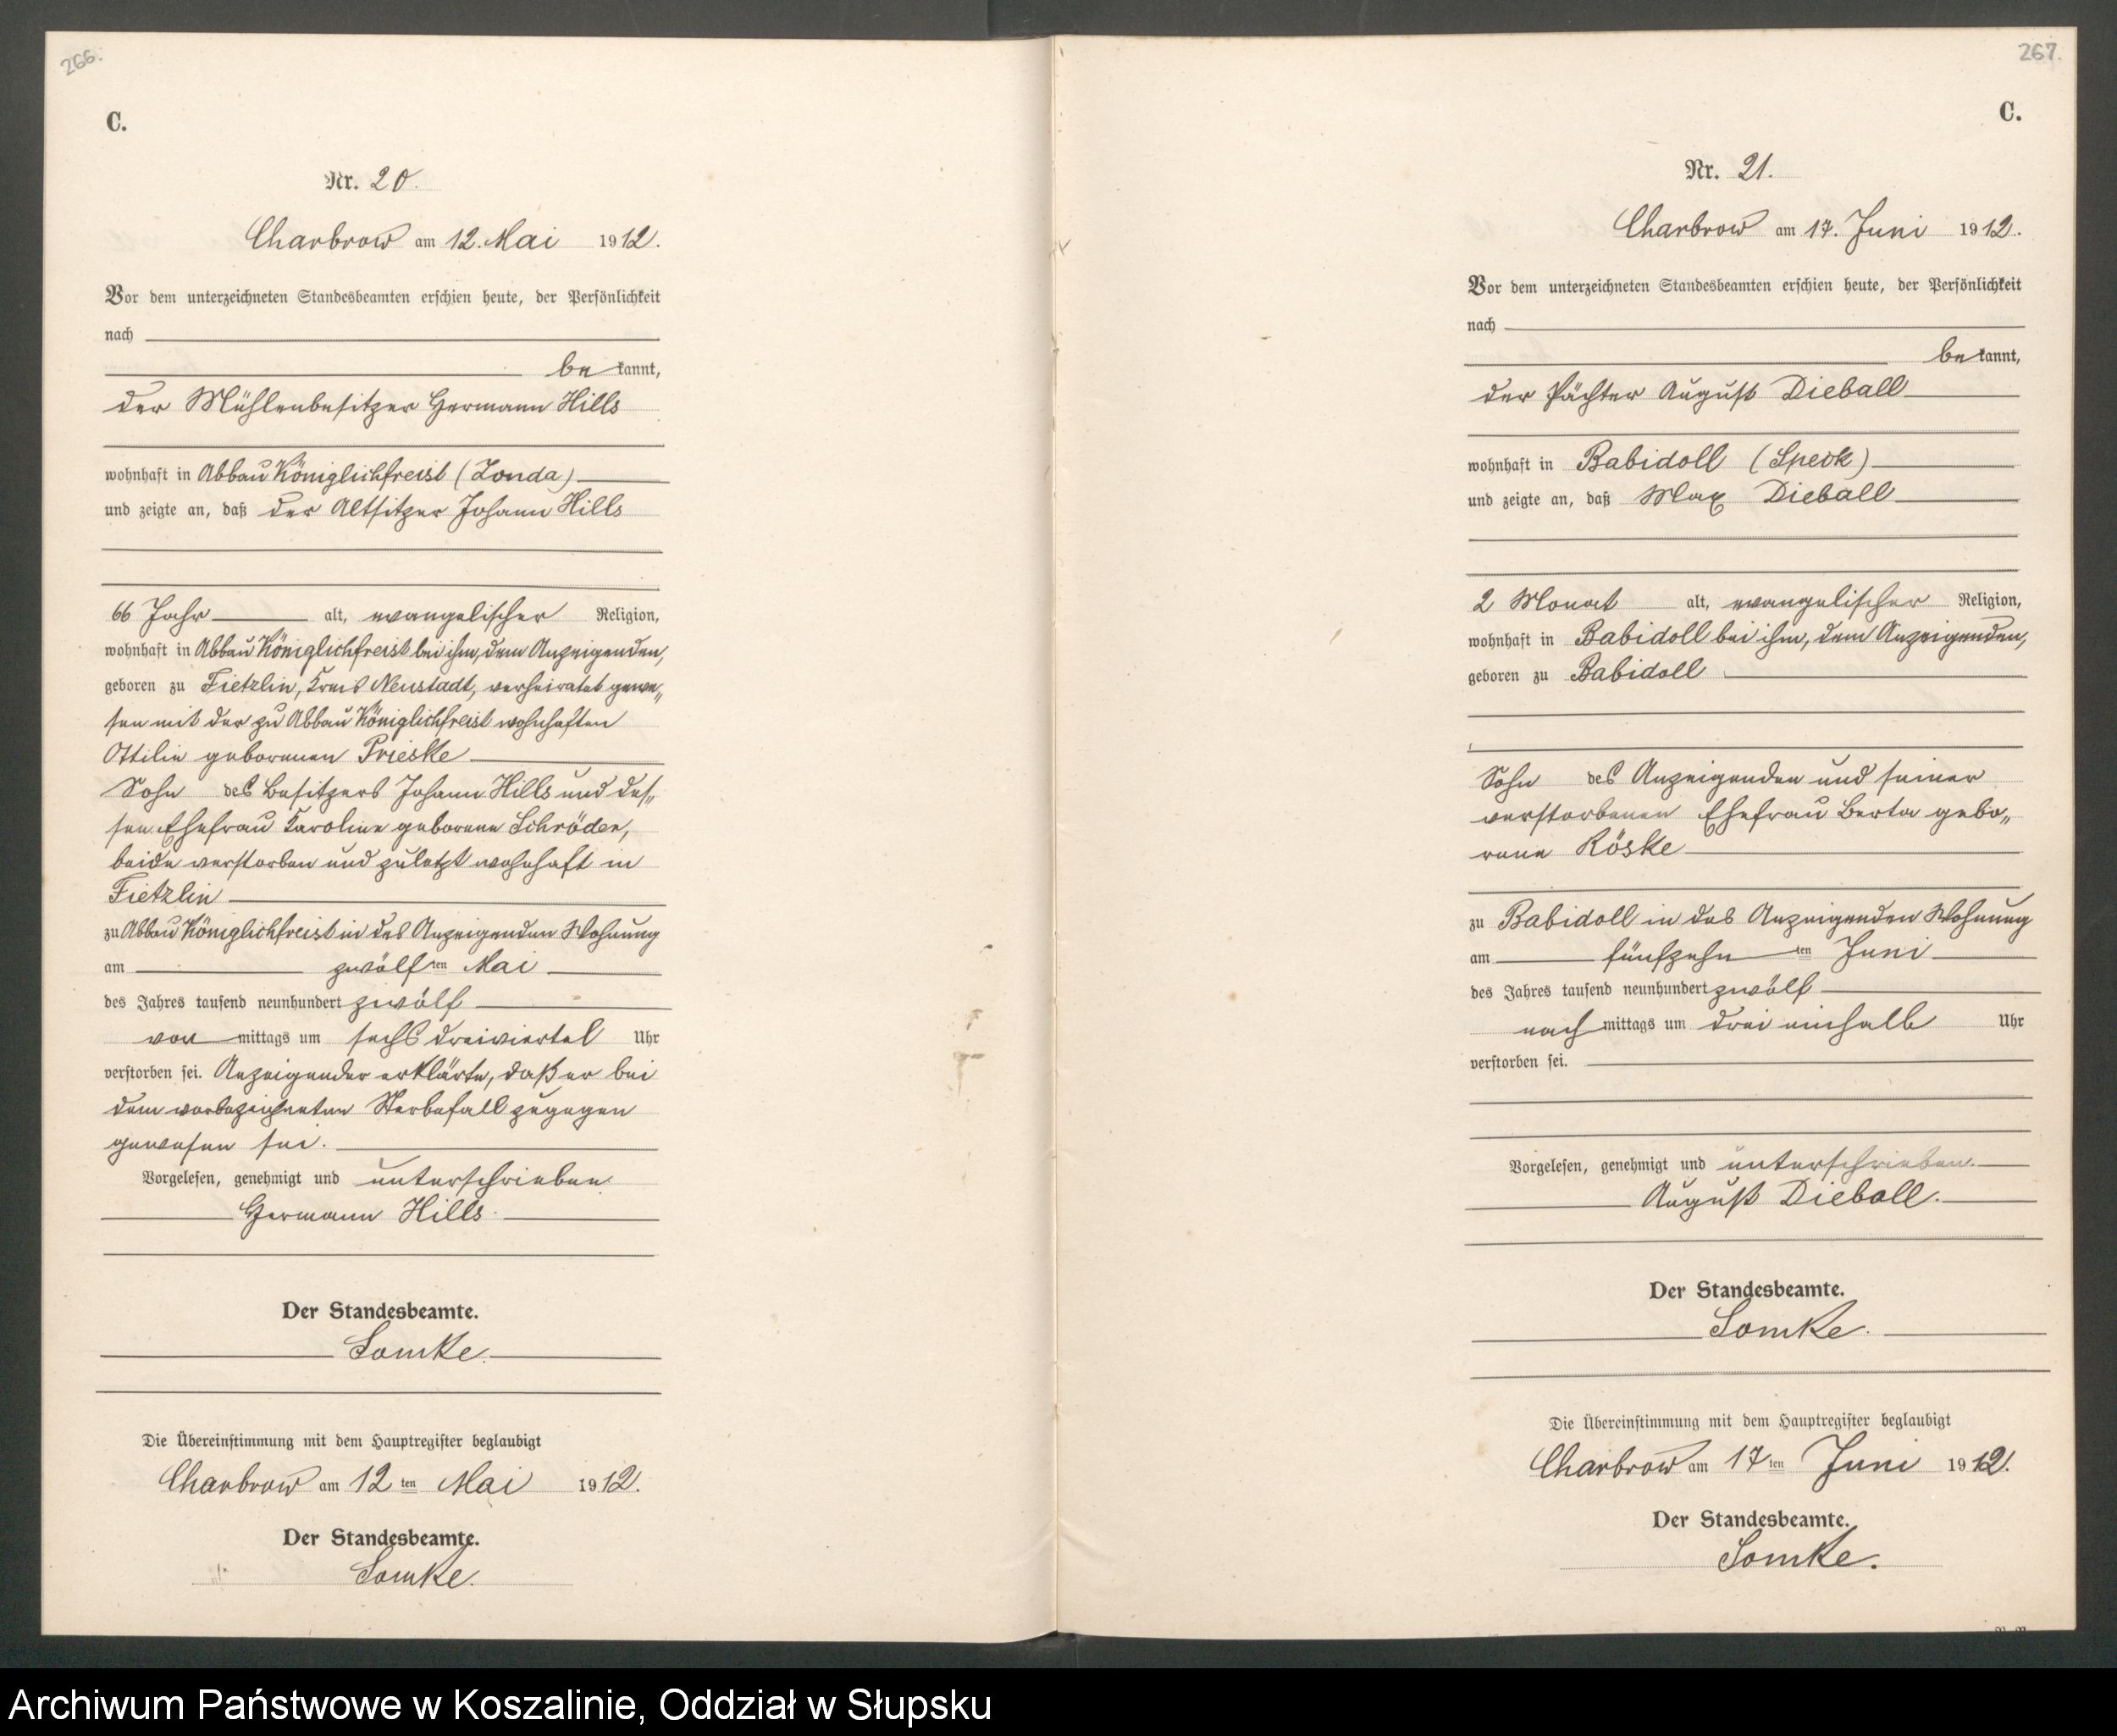 266.
C.
Nr. 20.
Charbrow am 12. Mai 1912.
Vor dem unterzeichneten Standesbeamten erschien heute, der Persönlichkeit
nach
be kannt,
der Mühlenbesitzer Hermann Hills
wohnhaft in Abbau Königlichfreist (Zonda)
und zeigte an, daß der Altsitzer Johann Hills
66 Jahr alt, evangelischer Religion,
wohnhaft in Abbau Königlichfreist bei ihm, dem Anzeigenden,
geboren zu Fietzlin, Kreis Neustadt, verheiratet gewe„
sen mit der zu Abbau Königlichfreist wohnhaften
Ottilie geborenen Prieske
Sohn des Besitzers Johann Hills und des„
sen Ehefrau Karoline geborene Schröder,
beide verstorben und zuletzt wohnhaft in
Fietzlin
zu Abbau Königlichfreist in des Anzeigenden Wohnung
am zwölf ten Mai
des Jahres tausend neunhundert zwölf
vor mittags um sechs dreiviertel Uhr
verstorben sei. Anzeigender erklärte, daß er bei
dem vorbezeichneten Sterbefall zugegen
gewesen sei.
Vorgelesen, genehmigt und unterschrieben
Hermann Hills.
Der Standesbeamte.
Somke.
Die Übereinstimmung mit dem Hauptregister beglaubigt
Charbrow am 12 ten Mai 1912.
Der Standesbeamte.
Somke.
267.
C.
Nr. 21.
Charbrow am 17. Juni 1912.
Vor dem unterzeichneten Standesbeamten erschien heute, der Persönlichkeit
nach
be kannt,
der Pächter August Dieball
wohnhaft in Babidoll (Speck)
und zeigte an, daß Max Dieball
2 Monat alt, evangelischer Religion,
wohnhaft in Babidoll bei ihm, dem Anzeigenden,
geboren zu Babidoll
Sohn des Anzeigenden und seiner
verstorbenen Ehefrau Berta gebo„
rene Röske
zu Babidoll in des Anzeigenden Wohnung
am fünfzehn ten Juni
des Jahres tausend neunhundert zwölf
nach mittags um drei einhalb Uhr
verstorben sei.
Vorgelesen, genehmigt und unterschrieben.
August Dieball.
Der Standesbeamte.
Somke.
Die Übereinstimmung mit dem Hauptregister beglaubigt
Charbrow am 17 ten Juni 1912.
Der Standesbeamte.
Somke.
Archiwum Państwowe w Koszalinie, Oddział w Słupsku